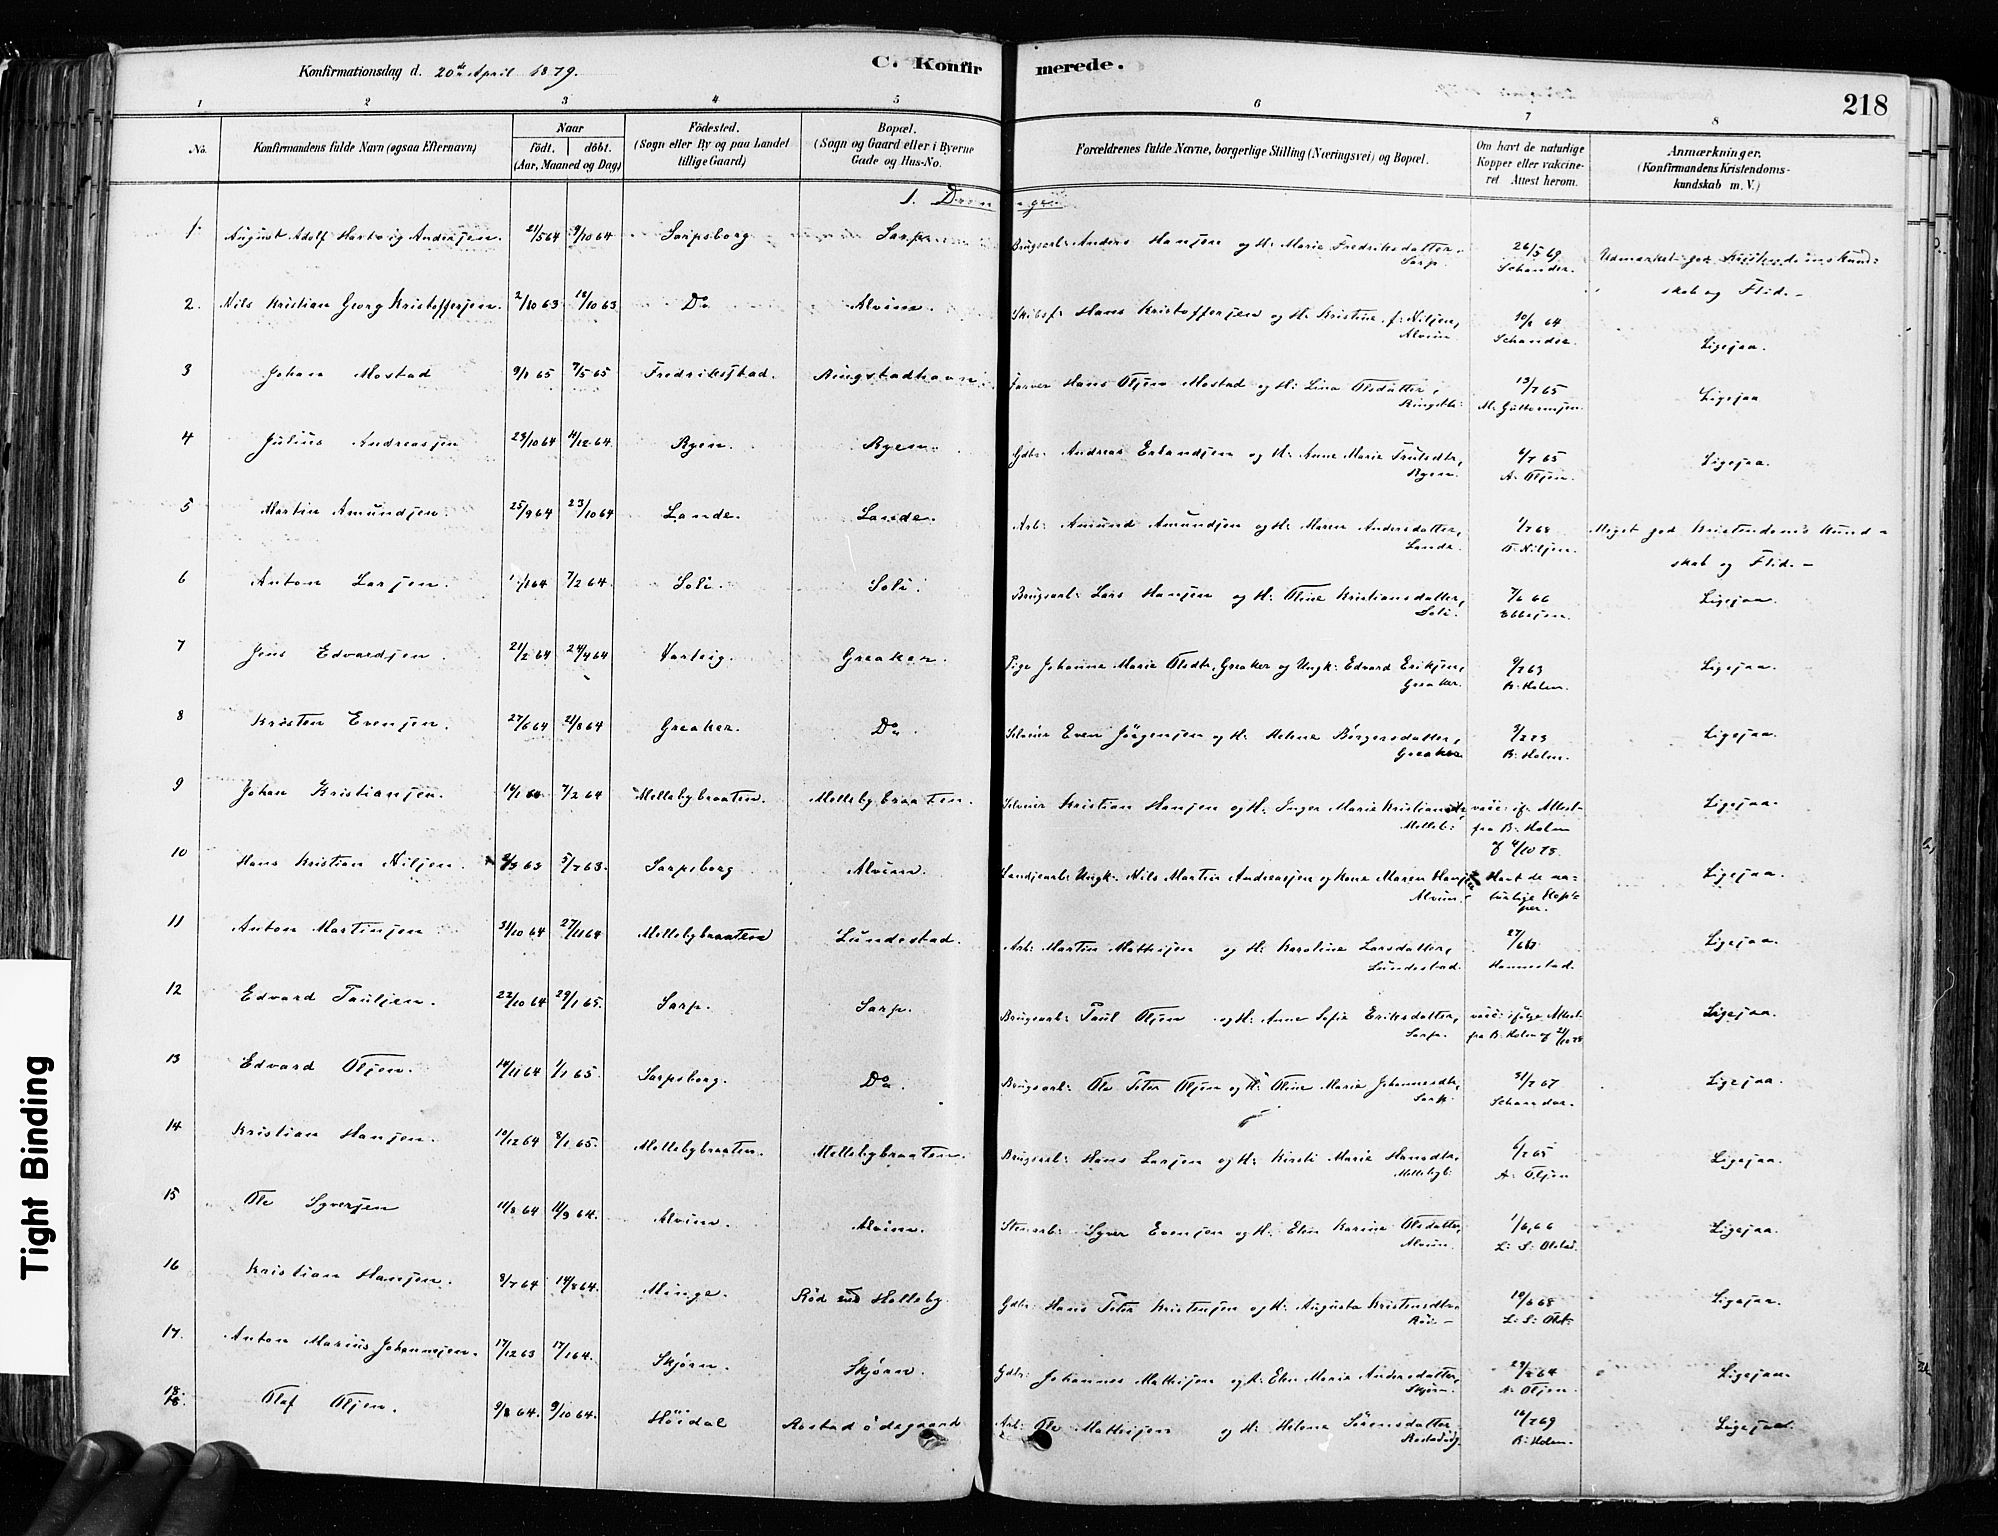 Konfirmationsdag d. 20de April 1879.
C. Konfirmerede.
218
1 2 3 4 5 6 7 8
No. Konfirmandens fulde Navn (ogsaa Efternavn) Naar født. døbt. (Aar, Maaned og Dag) Födested. (Sogn eller By og paa Landet tillige Gaard) Bopæl. (Sogn og Gaard eller i Byerne Gade og Hus-No. Forældrenes fulde Navne, borgerlige Stilling (Næringsvei) og Bopæl. Om havt de naturlige Kopper eller vakcineret Attest herom. Anmærkninger. (Konfirmandens Kristendomskundskab m. V.)
1. Drenge
1. August Adolf Hartvig Andersen. 21/5 64 9/10 64 Sarpsborg Sarp Brugsarb: Anders Hansen og H: Marie Fredriksdatter Sarp. 26/5 69 Schander. Udmærket god Kristendomskundskab og Flid. -
2. Nils Kristian Georg Kristoffersen. 2/10 63 18/10 63 Do Alvim. Skibsf: Hans Kristoffersen og H: Kristine f: Nilsen, Alvim. 10/8 64 Schander. Ligesaa.
3 Johan Mostad 9/1 65 7/5 65 Fredriksstad. Ringstadhavn Farver Hans Olsen Mostad og H: Lina Olsdatter, Ringstb: 13/7 65 M: Guttormsen. Ligesaa
4 Julius Andreassen 23/10 64 11/12 64. Ryen. Ryen. Gdbr: Andreas Erlandsen og H: Anne Marie Trulsdtr, Ryen. 6/7 65 A: Olsen. Ligesaa.
5 Martin Amundsen. 25/9 64 23/10 64 Lande. Lande. Arb: Amund Amundsen og H: Maren Andersdatter, Lande. 1/7 68 B: Nilsen. Meget god Kristendomskundskab og Flid. -
6 Anton Larsen. 1/1 64 7/2 64 Soli. Soli. Brugsarb: Lars Hansen og H: Oline Kristiansdatter, Soli. 7/6 66 Ebbesen. Ligesaa.
7 Jens Edvardsen. 21/2 64 24/4 64 Varteig. Greaker. Pige Johanne Marie Olsdtr, Greaker og Ungk: Edvard Eriksen, Greaker. 9/7 69 B: Holm. Ligesaa.
8 Kristen Evensen. 27/6 64 21/8 64 Greaker. Do. Selveier Even Jörgensen og H: Helene Börgersdatter, Greaker B: Holm. Ligesaa.
9 Johan Kristiansen. 14/1 64 7/2 64 Mellebybraaten. Mellebybraaten. Selveier Kristian Hansen og H: Inger Marie Kristiansdtr, Melleb: vacc: if: Attest fra B: Holm af 4/10 78. Ligesaa.
10 Hans Kristian Nilsen. 5/7 63. Sarpsborg Alvim. Ungk: Nils Martin Andreassen og Kone Maren Hansen Alvim. Havt de naturlige Kopper. Ligesaa.
11 Anton Martinsen 31/10 64 27/11 64 Mellebybraaten Lundestad. Arb: Martin Mathisen og H: Karoline Larsdatter, Lundestad. Hannestad. Ligesaa.
12 Edvard Paulsen. 22/10 64 29/1 65. Sarp. Sarp. Brugsarb: Paul Olsen og H: Anne Sofie Eriksdatter, Sarp. vacc: ifølge Attest fra B: Holm af 21/10 78 Ligesaa.
13 Edvard Olsen. 14/11 64 1/1 65. Sarpsborg. Do. Brugsarb: Ole Peter Olsen og H: Oline Marie Johannesdtr, Sarp. 31/7 67 Schander. Ligesaa.
14 Kristian Hansen. 19/12 64 8/1 65. Mellebybraaten. Mellebybraaten. Brugsarb: Hans Larsen og H: Kirsti Marie Hansdtr, Mellebyb. 6/7 65 A: Olsen Ligesaa.
15 Ole Syversen 11/8 64 11/9 64. Alvim. Alvim. Stenarb: Syver Evensen og H: Elen Karine Olsdatter, Alvim. 1/6 66 L: S: Olstad. Ligesaa.
16 Kristian Hansen. 8/7 64 14/8 64. Minge. Röd ved Holleby. Gdbr: Hans Peter Kristensen og H: Augusta Kristensdtr 10/6 68 L: S: Olst: Ligesaa.
17. Anton Marius Johannesen. 17/12 63 17/1 64. Skjørn. Skjørn. Gdbr: Johannes Mathisen og H: Elen Marie Andersdatter, Skjørn. 29/8 64 A: Olsen. Ligesaa.
18. Olaf Olsen. 9/8 64. 9/10 64. Höidal Rostad ödegaard Arb: Ole Mathisen og H: Helene Sörensdatter 16/7 69 B: Holm. Ligesaa.
Tight Binding